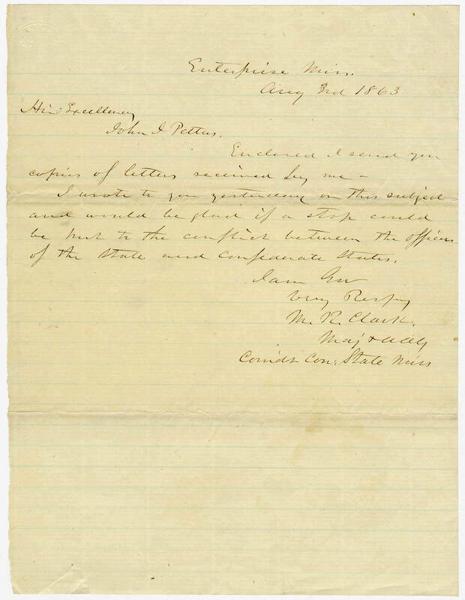 Enterprise Miss.
Aug 3rd 1863
His Excellency
John J Pettus.
Enclosed I send you
copies of letters received by me –
I wrote to you yesterday on this subject
and would be glad if a stop could
be put to the conflict between the officers
of the State and Confederate States.
I am Gov
Very Respy
M. R. Clark.
Maj & AAG
Comdt Con. State Miss